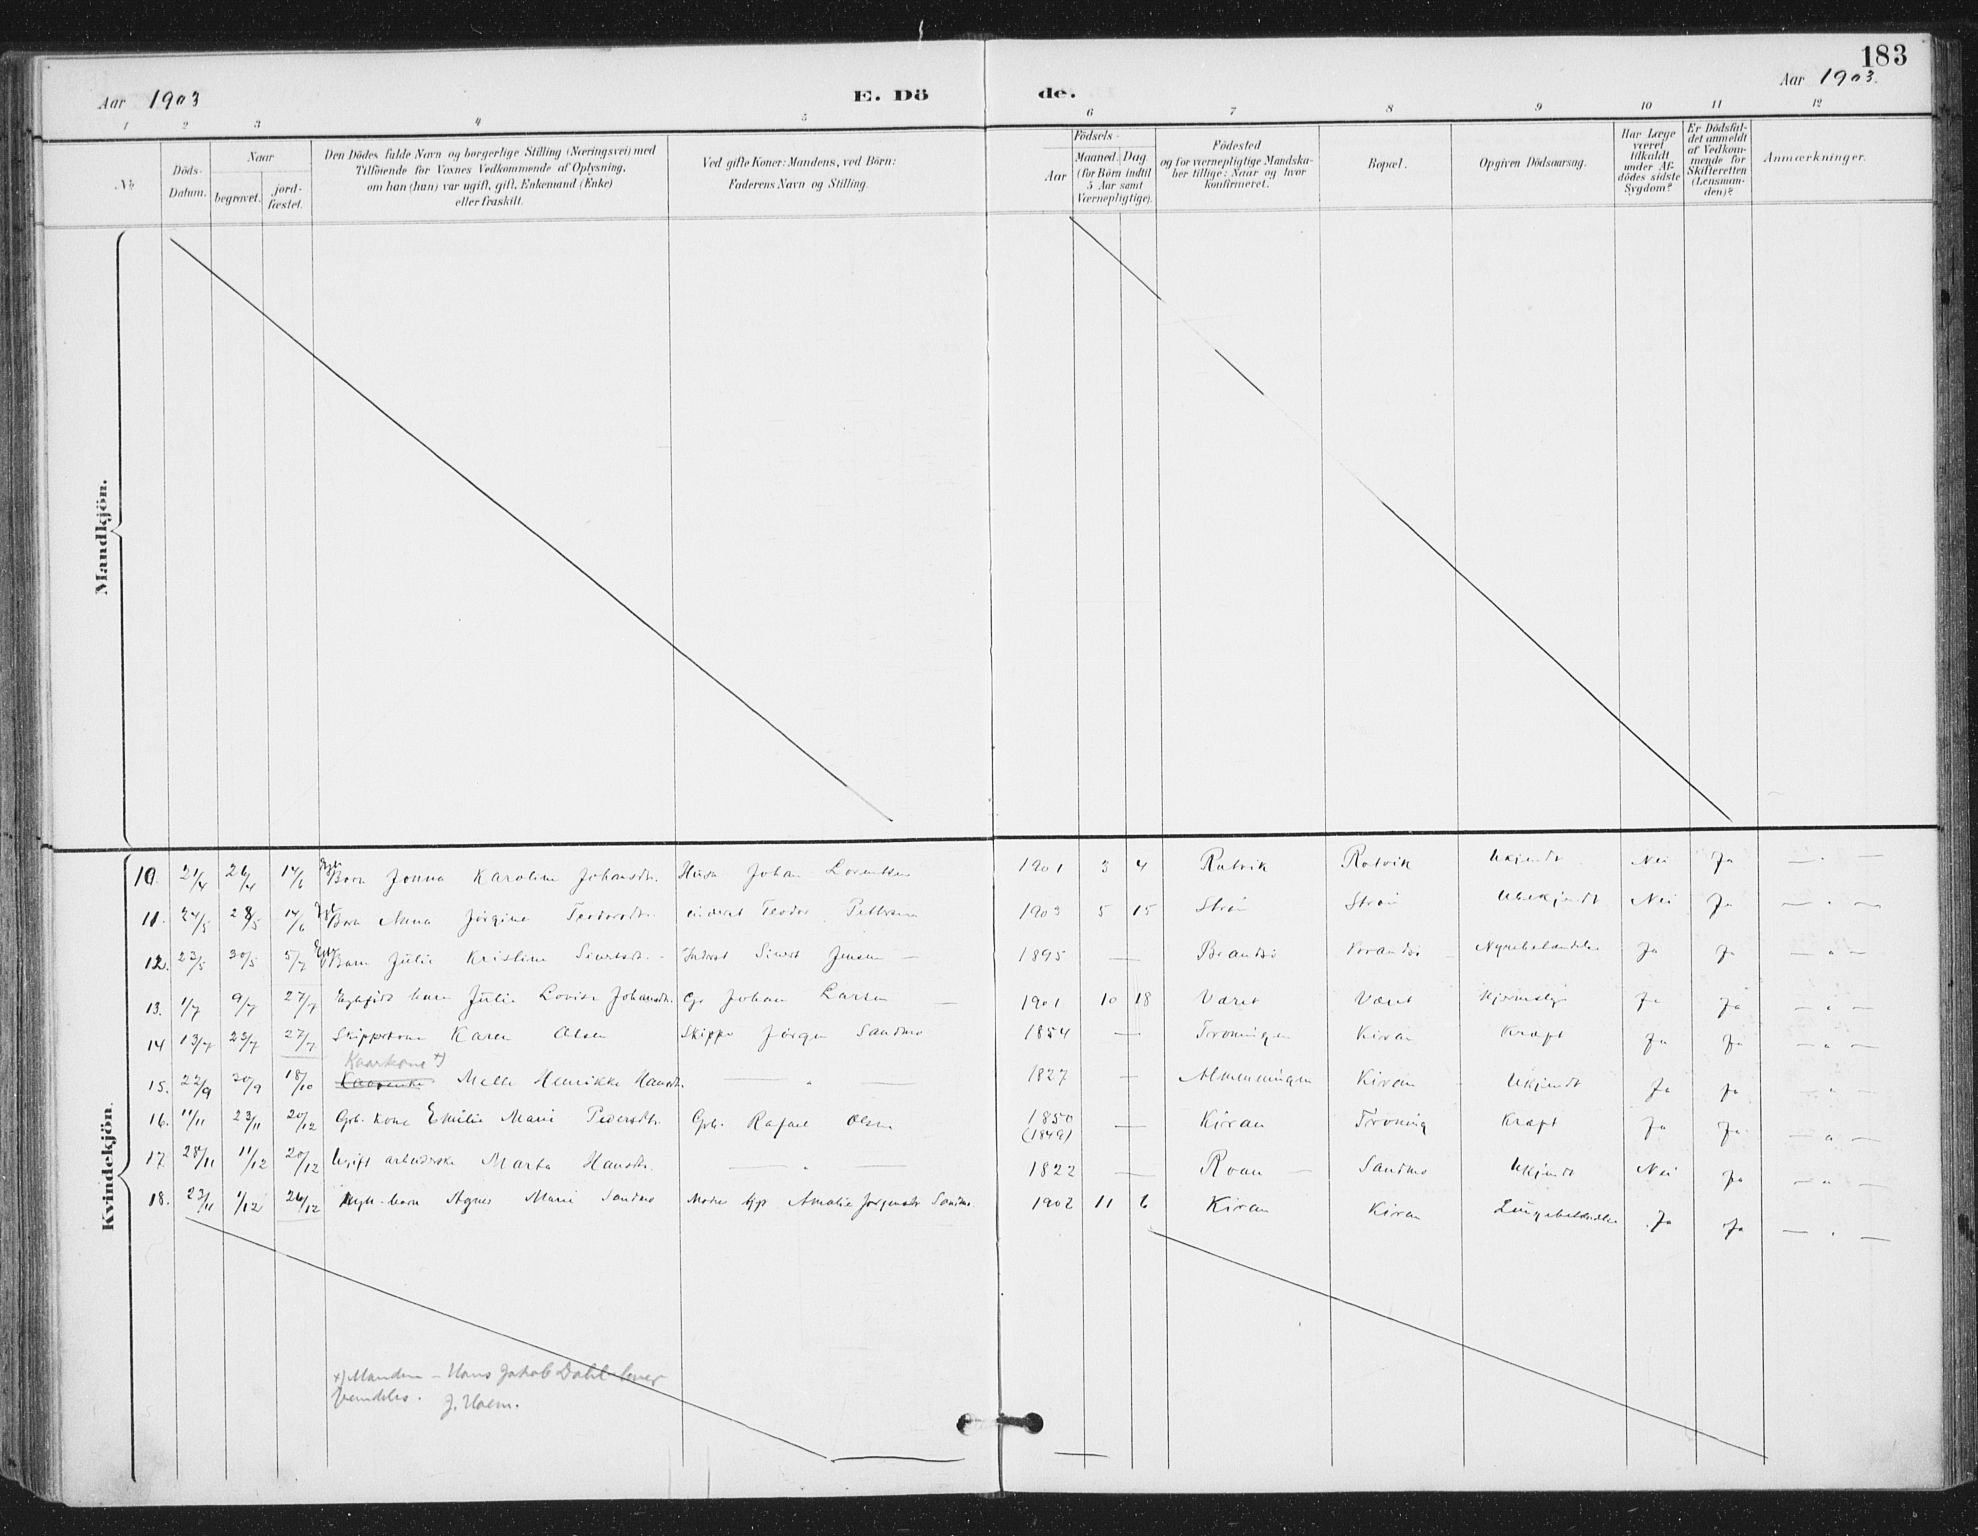 183
Aar 1903
E. Dö de.
Aar 1903.
1 2 3 4 5 6 7 8 9 10 11 12
No
Döds-Datum.
Naar
begravet.
jord-fæstet.
Den Dödes fulde Navn og borgerlige Stilling (Næringsvei) med
Tilföiende for Voxnes Vedkommende af Oplysning,
om han (hun) var ugift, gift, Enkemand (Enke)
eller fraskilt.
Ved gifte Koner: Mandens, ved Börn:
Faderens Navn og Stilling.
Födsels-
Aar
Maaned. Dag
(for Börn indtil
5 Aar samt
Værnepligtige).
Födested
og for værnepligtige Mandska-
ber tillige: Naar og hvor
konfirmeret.
Bopæl.
Opgiven Dödsaarsag.
Har Læge
været
tilkaldt
under Af-
dödes sidste
Sygdom?
Er Dödsfal-
det anmeldt
af Vedkom-
mende for
Skifteretten
(Lensman-
den)?
Anmærkninger.
Mandkjön.
Kvindekjön.
10. 21/4 26/4 14/6 Barn Jonna Karoline Johansdtr. Husm Johan Lorentsen 1901 3 4 Ratvik Ratvik Ukjendt Nei Ja
11. 24/5 28/5 14/6 Barn Anna Jörgine Teodorsdtr. Teodor Pettersen 1903 5 15 Strøm Strøm Ubekjendt Nei Ja
12. 23/5 30/5 5/7 Barn Julie Kristine Sivertsdtr. Inderst Sivert Jensen 1895 — Brandsø Brandsø Nyrebetændelse Ja Ja
13. 1/7 9/7 27/7 barn Julie Lovise Johansdtr. Johan Larsen 1901 10 18 Været Været Ja Ja
14 13/7 23/7 27/7 Skipperkone Karen Olsen Skipper Jörgen Sandmo 1854 — Terningen Kiran Kræft Ja Ja
Kaarkone +)
15. 22/9 30/9 18/10 Mette Henrikke Hansdtr. — " — 1827 — Almenningen Kiran Ukjendt Ja Ja
16. 11/11 23/11 20/12 Grb. Kone Emilie Marie Pedersdtr. Grb. Rafael Olsen 1850 (1849) — Kiran Terning Kræft Ja Ja
17. 28/11 11/12 20/12 Ugift arbeiderske Marta Hansdtr. — " — 1822 — Roan Sandmo Ukjendt Nei Ja
18. 23/11 1/12 26/12 barn Agnes Marie Sandmo Moder Amalie Jörgensdtr Sandmo 1902 11 6 Kiran Kiran Lungebetændelse Ja Ja
+) Manden – Hans Jakob Dahl lever
fremdeles. J. Hoem.